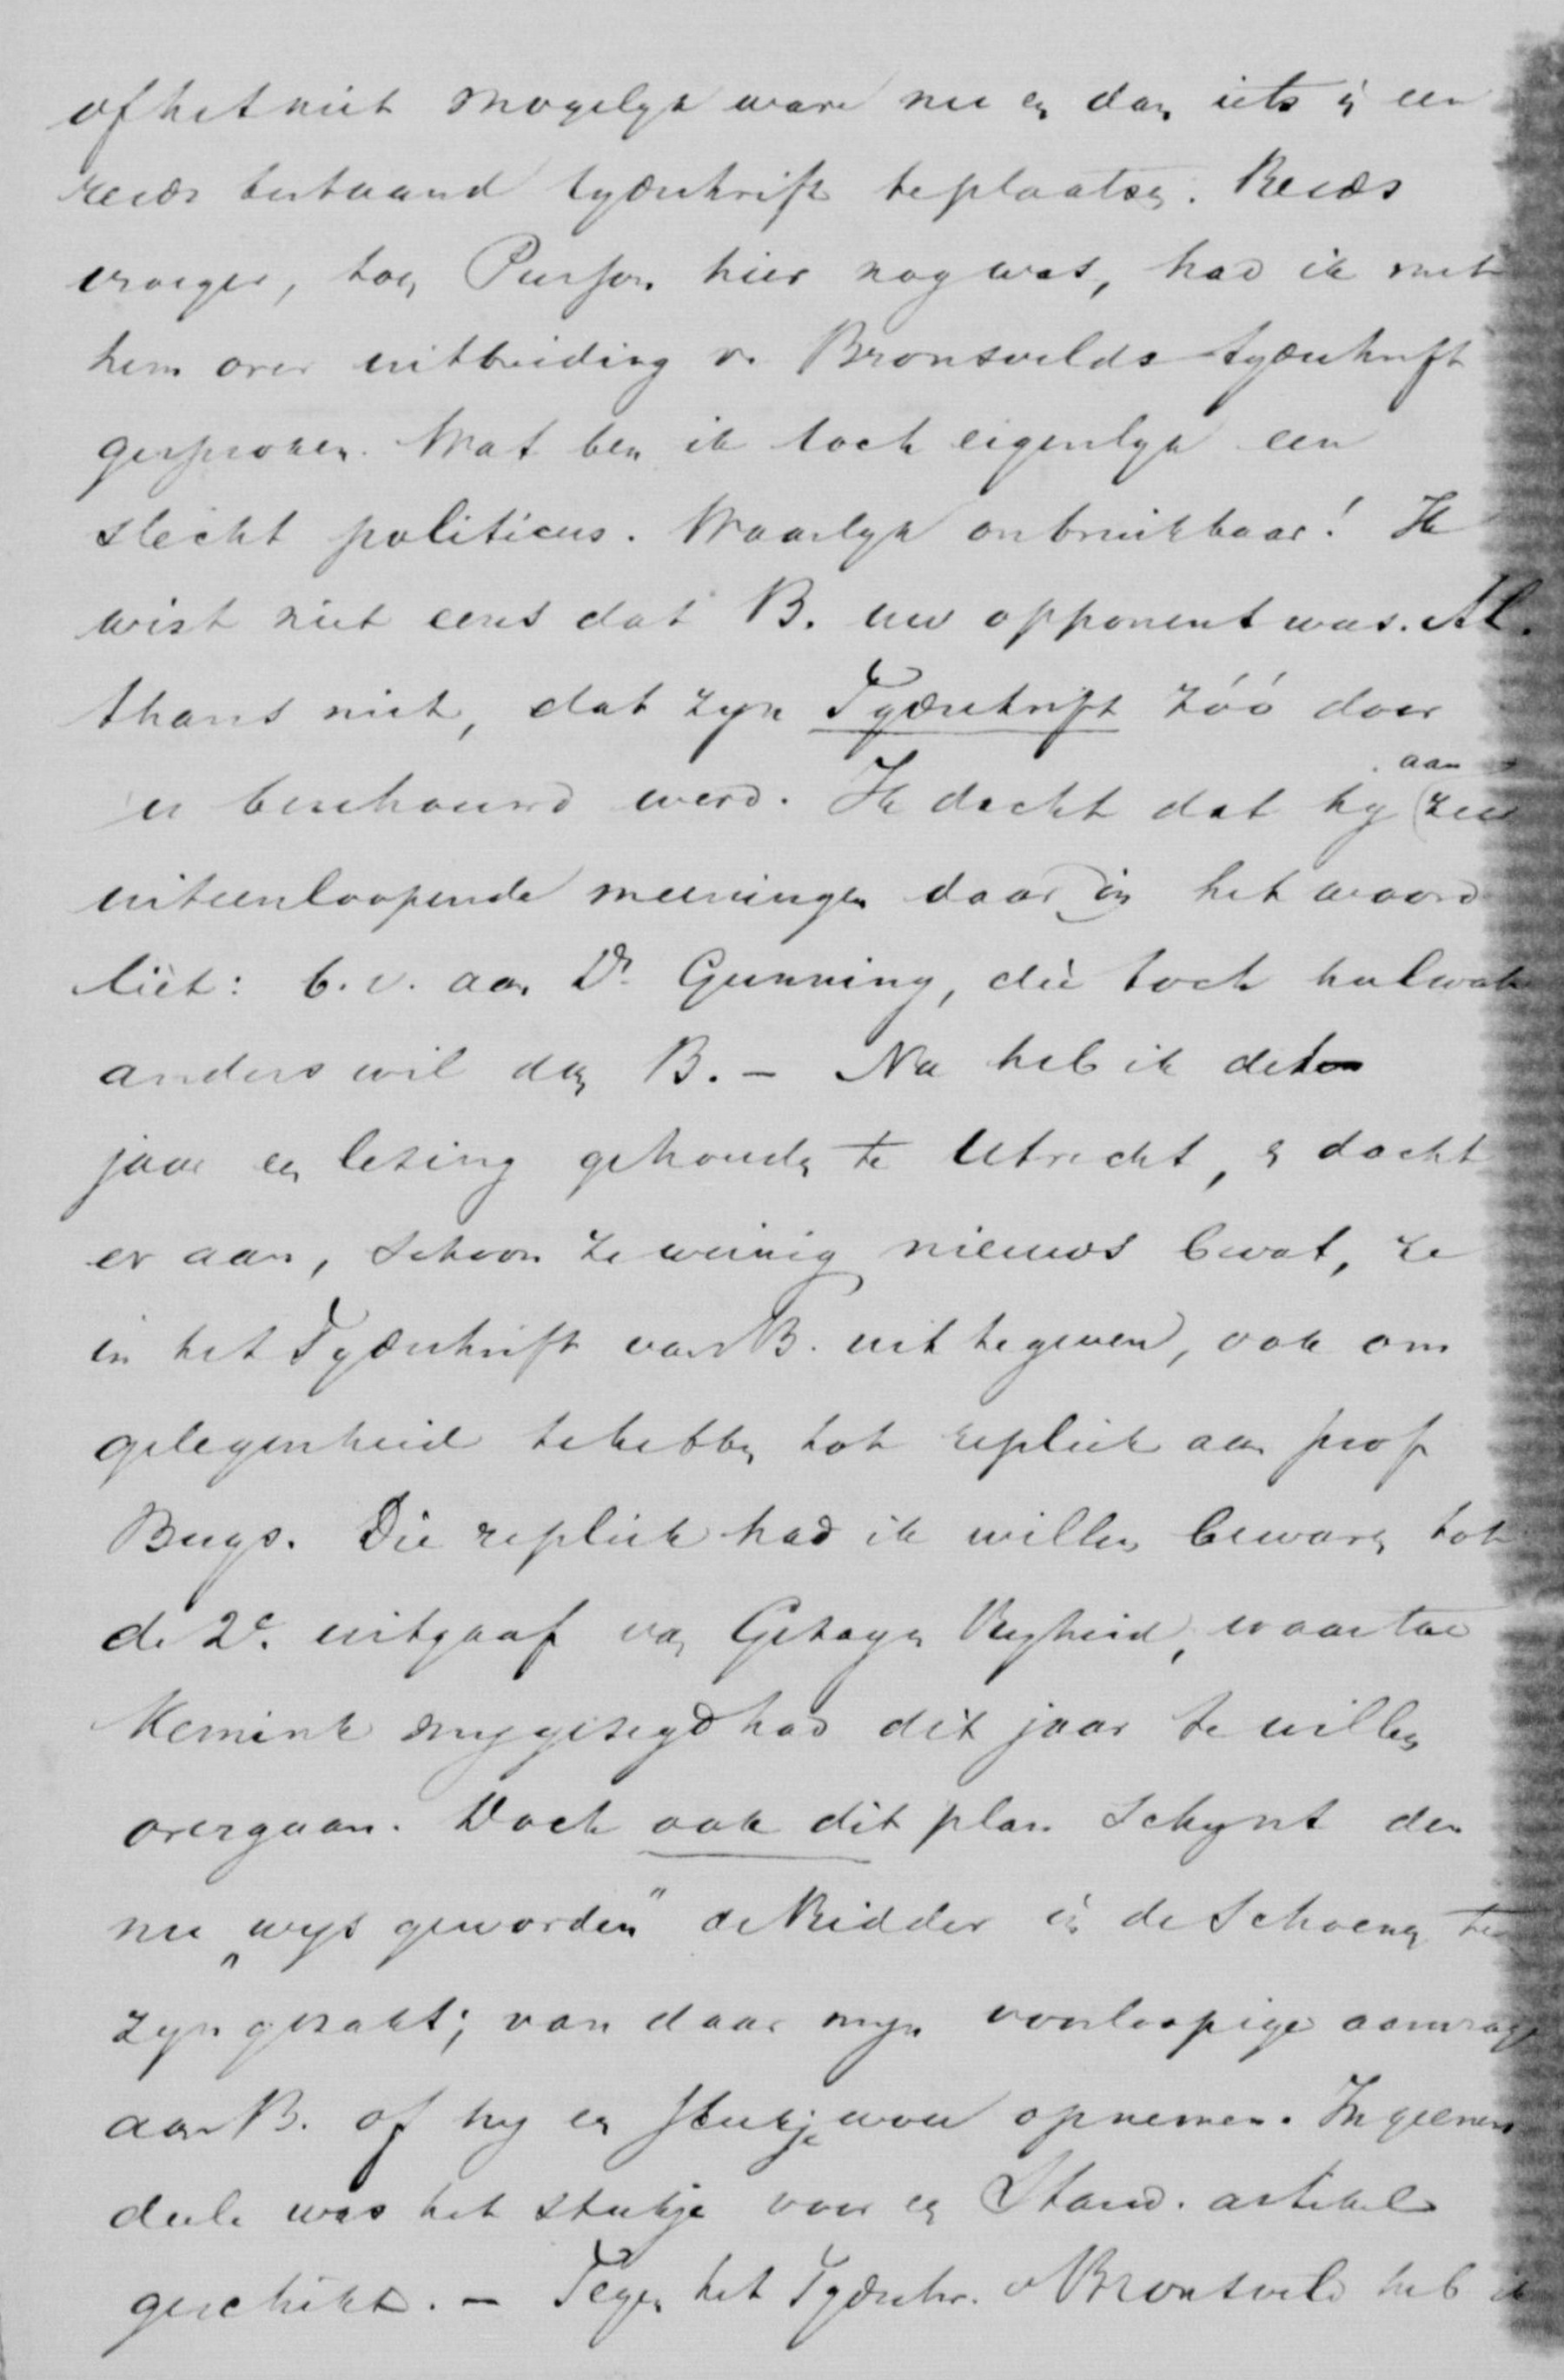 of het niet mogelyk ware nu en dan iets in een
reeds bestaand tydschrift te plaatsen. Reeds
vroeger, toen Pierson hier nog was, had ik met
hem over uitbreiding v. Bronsvelds tydschrift
gesproken. Wat ben ik toch eigenlyk een
slecht politicus. Waarlyk onbruikbaar! Ik
wist niet eens dat B. uw opponent was. Al.
thans niet, dat zyn Tydschrift zóó door
u beschouwd werd. Ik dacht dat hy aan zeer
uiteenloopende meeningen daarin het woord
liet: b.v. aan Dr. Gunning, die toch heel wat
anders wil dan B. – Nu heb ik dit
jaar en lezing gehouden te Utrecht, en dacht
er aan, schoon ze weinig nieuws bevat, ze
in het Tydschrift van B. uit te geven, ook om
gelegenheid te hebben tot repliek aan prof
Buys. Die repliek had ik willen bewaren tot
de 2e. uitgaaf van Gezag en Vryheid, waartoe
Kemink my gezegd had dit jaar te willen
overgaan. Doch ook dit plan schynt den
nu „wys geworden" de Ridder in de schoenen te
zyn gezakt; van daar myn voorloopige aanvrage
aan B. of hy en stukje wou opnemen. In geenen
deele was het stukje voor en Stand. artikel
geschikt. – Tegen het Tydschr. v Bronsveld heb ik